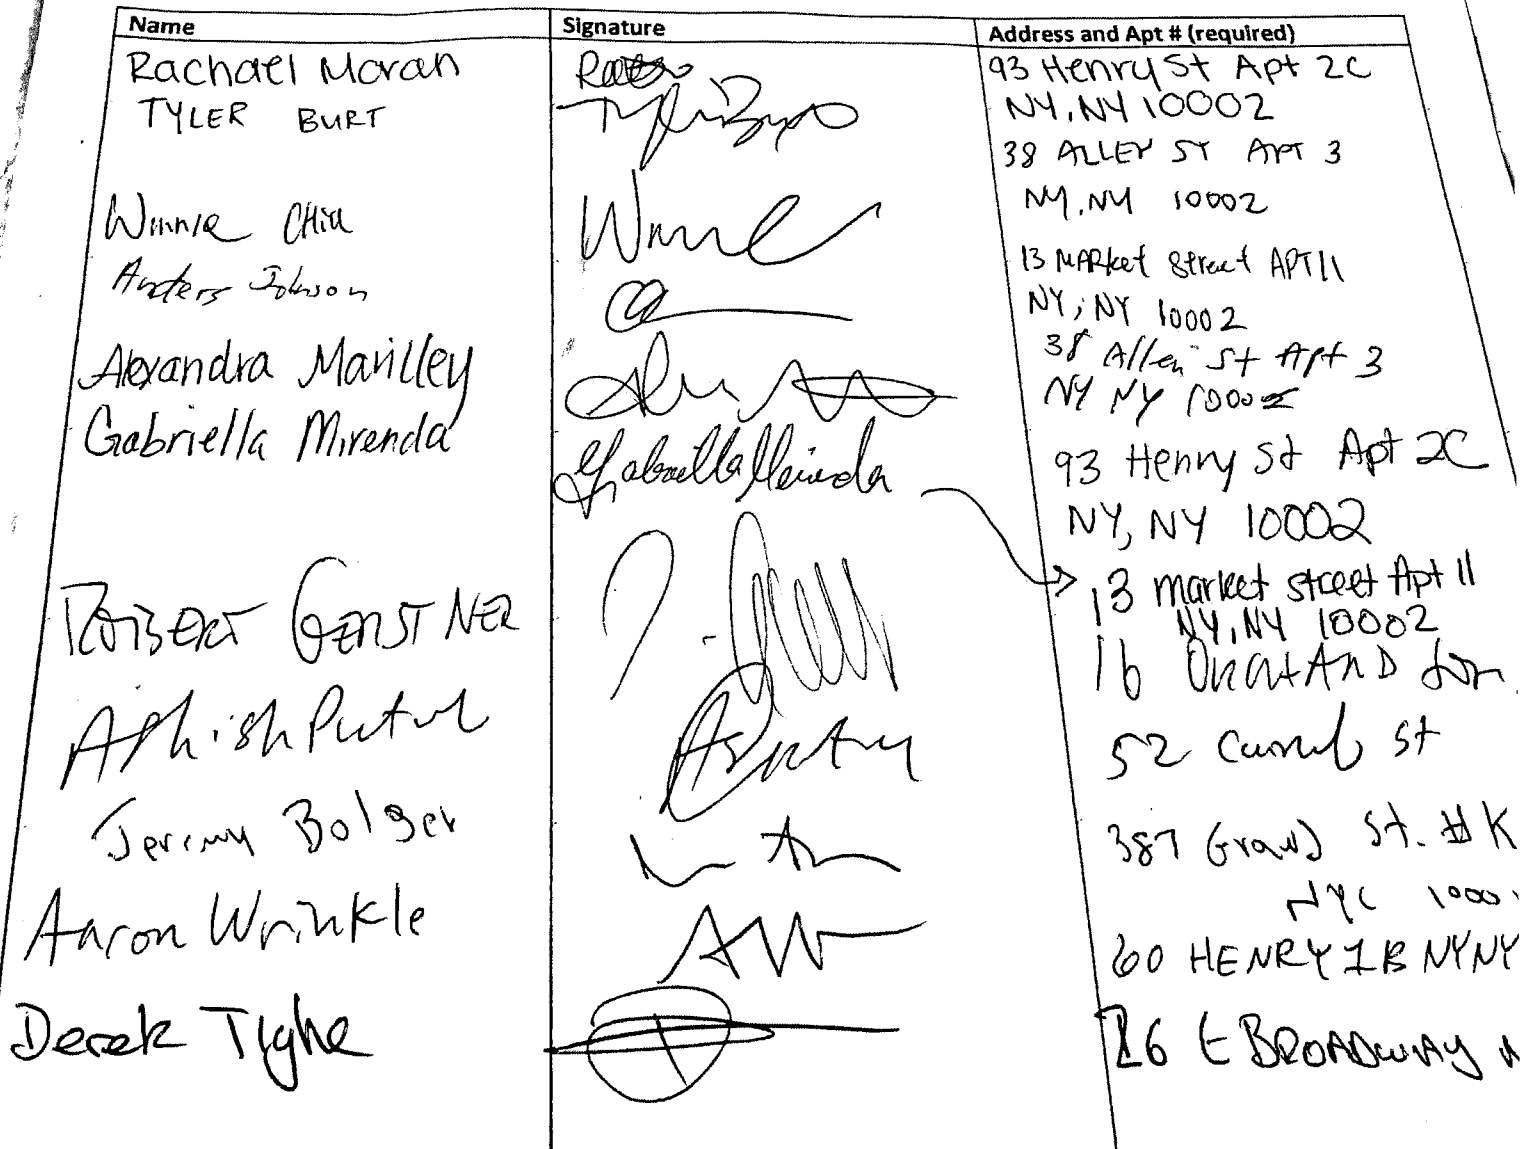 Name Signature Address and Apt # (required)
Rachael Moran 93 Henry St Apt 2C
NY, NY 10002
TYLER BURT Tyler Burt 38 ALLEN ST APT 3
NY, NY 10002
Winnie CHIU Winnie 13 MARket Street APT 11
NY, NY 10002
Anders Johnson 38 Allen St Apt 3
NY NY 10002
Alexandra Marilley 93 Henry St Apt 2C
NY, NY 10002
Gabriella Mirenda Gabriella Mirenda 13 market street Apt 11
NY, NY 10002
ROBERT GERSTNER 16 ORCHARD
Ashish Patel 52 Canal St
Jeremy Bolger 387 Grand St. # K
NYC 1000
Aaron Wrinkle AW 60 HENRY 1B NY NY
Derek Tighe 26 E BROADWAY